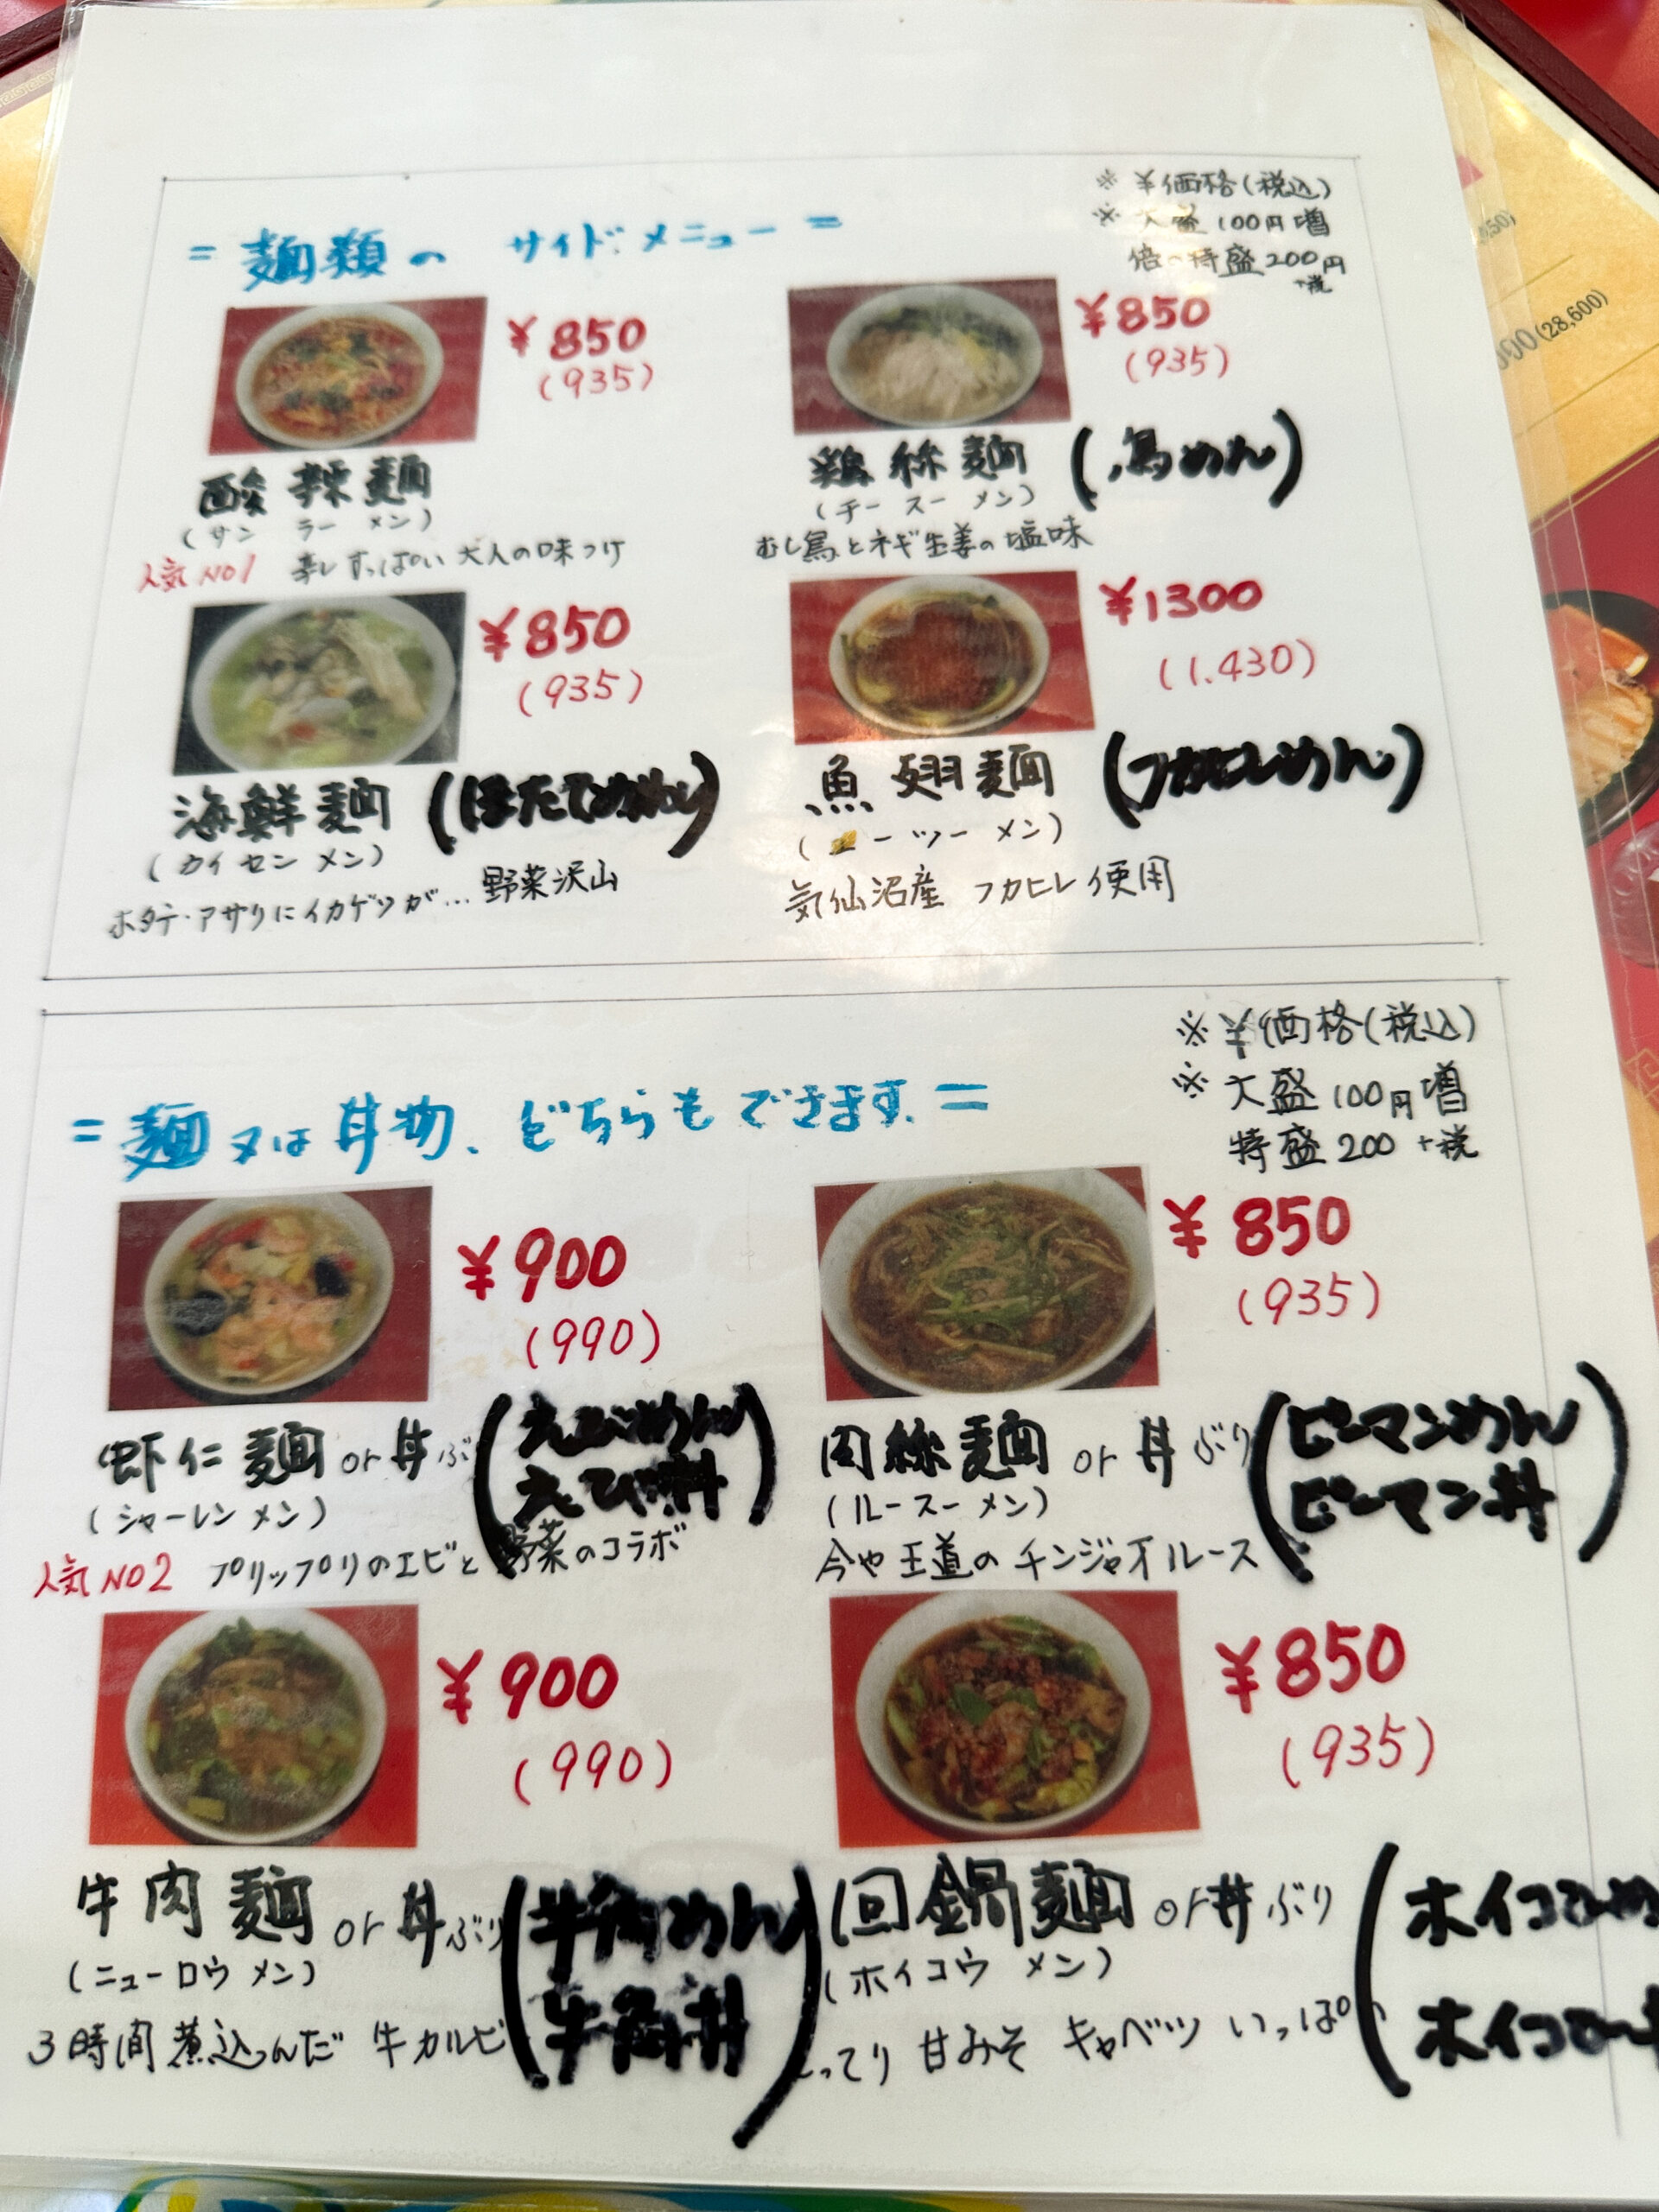 ※ ¥価格(税込)
※ 大盛 100円増
倍の特盛 200円
+税
= 麺類の サイドメニュー =
¥850
(935)
酸辣麺
(サンラーメン)
人気NO1 辛しすっぱい 大人の味つけ
¥850
(935)
鶏絲麺 (鳥めん)
(チースーメン)
むし鳥とネギ生姜の塩味
¥850
(935)
海鮮麺 (ほたてめん)
(カイセンメン)
ホタテ・アサリにイカゲソが… 野菜沢山
¥1300
(1.430)
魚翅麺 (フカヒレめん)
(ユーツーメン)
気仙沼産 フカヒレ使用
※ ¥価格(税込)
※ 大盛 100円増
特盛 200 +税
= 麺又は丼物、どちらもできます. =
¥900
(990)
虾仁麺 or 丼ぶ (えびめん
えび丼)
(シャーレンメン)
人気NO2 プリップリのエビと野菜のコラボ
¥850
(935)
肉絲麺 or 丼ぶり (ピーマンめん
ピーマン丼)
(ルースーメン)
今や王道の チンジャオルース
¥900
(990)
牛肉麺 or 丼ぶり (牛角めん
牛角丼)
(ニューロウメン)
3時間煮込んだ 牛カルビ
¥850
(935)
回鍋麺 or 丼ぶり (ホイコーめ
ホイコー
(ホイコウメン)
ってり 甘みそ キャベツ いっぱい
(28,600)